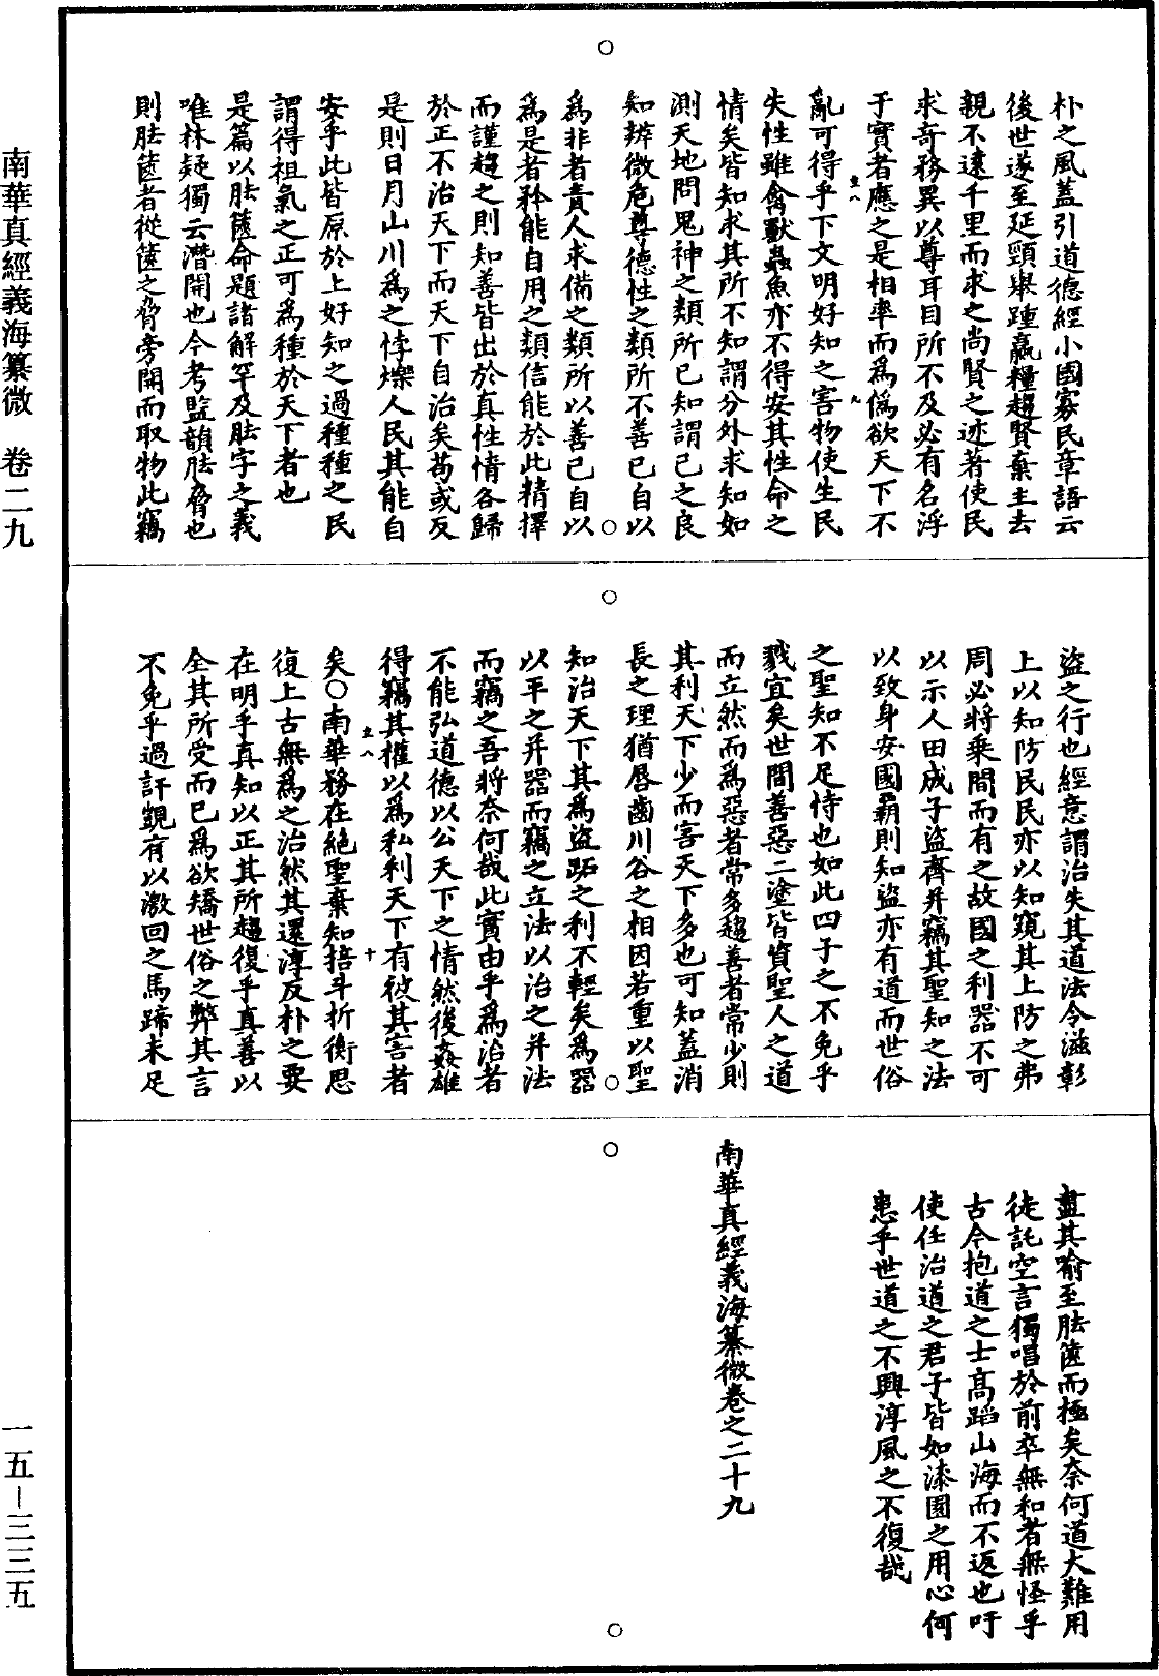 朴之風蓋引道德經小國寡民章語云
後世遂至延頸舉踵贏糧趨賢棄主去
親不遠千里而求之尚賢之迹著使民
求奇務異以尊耳目所不及必有名浮
于實者應之是相率而為偽欲天下不
亂可得乎下文明好知之害物使生民
失性雖禽獸蟲魚亦不得安其性命之
情矣皆知求其所不知謂分外求知如
測天地問鬼神之類所已知謂己之良
知辨微危尊德性之類所不善已自以
為非者責人求備之類所以善已自以
為是者矜能自用之類信能於此精擇
而謹趨之則知善皆出於真性情各歸
於正不治天下而天下自治矣苟或反
是則日月山川為之悖爍人民其能自
安乎此皆原於上好知之過種種之民
謂得祖氣之正可為種於天下者也
是篇以胠篋命題諸解罕及胠字之義
唯林疑獨云潛開也今考監韻胠脅也
則胠篋者從篋之脅旁開而取物此竊
盜之行也經意謂治失其道法令滋彰
上以知防民民亦以知窺其上防之弗
周必將乘間而有之故國之利器不可
以示人田成子盜齊并竊其聖知之法
以致身安國霸則知盜亦有道而世俗
之聖知不足恃也如此四子之不免乎
戮宜矣世間善惡二塗皆資聖人之道
而立然而為惡者常多趨善者常少則
其利天下少而害天下多也可知蓋消
長之理猶唇齒川谷之相因若重以聖
知治天下其為盜跖之利不輕矣為器
以平之并器而竊之立法以治之并法
而竊之吾將奈何哉此實由乎為治者
不能弘道德以公天下之情然後姦雄
得竊其權以為私利天下有彼其害者
矣○南華務在絕聖棄知掊斗折衡思
復上古無為之治然其還淳反朴之要
在明乎真知以正其所趨復乎真善以
全其所受而已為欲矯世俗之弊其言
不免乎過訐觀有以激回之馬蹄未足
盡其喻至胠篋而極矣奈何道大難用
徒託空言獨唱於前卒無和者無怪乎
古今抱道之士高蹈山海而不返也吁
使任治道之君子皆如漆園之用心何
患乎世道之不興淳風之不復哉
南華真經義海纂微卷之二十九
南華真經義海纂微 卷二九
一五－三三五